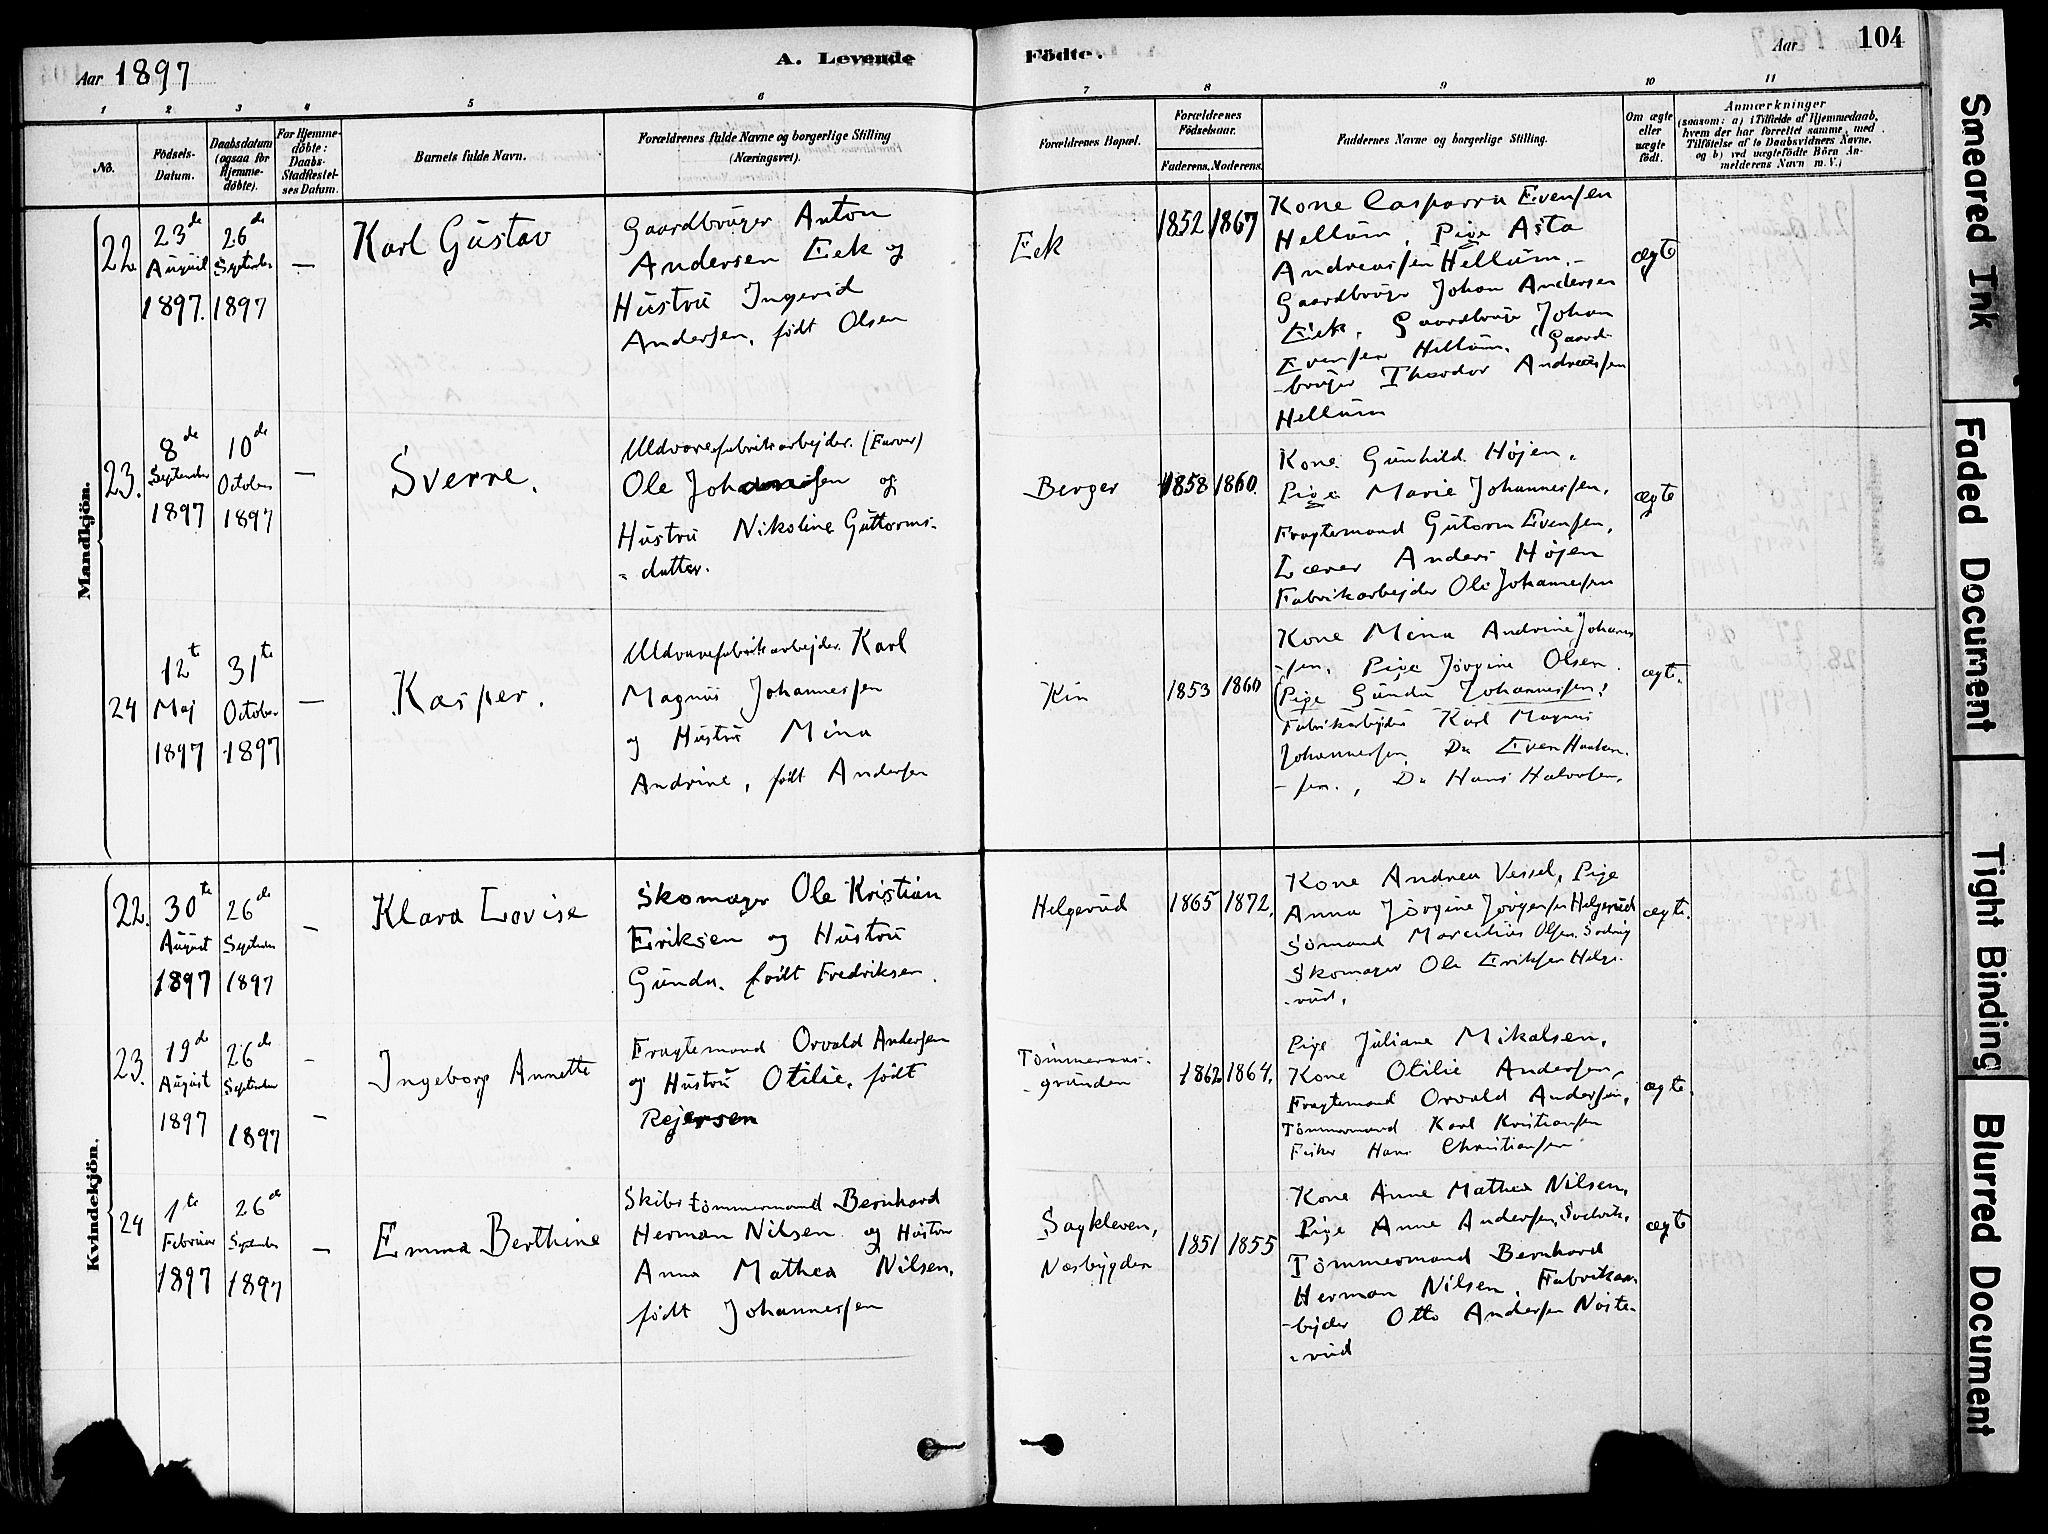 Aar 1897
A. Levende
Födte.
Aar
104
1 2 3 4 5 6 7 8 9 10 11
No.
Födsels-
Datum.
Daabsdatum
(ogsaa for
Hjemme-
døbte).
For Hjemme-
döbte:
Daabs-
Stadfæstel-
ses Datum.
Barnets fulde Navn.
Forældrenes fulde Navne og borgerlige Stilling
(Næringsvei).
Forældrenes Bopæl.
Forældrenes
Födselsaar.
Faderens. Moderens.
Faddernes Navne og borgerlige Stilling.
Om ægte
eller
uægte
födt.
Anmærkninger
(saasom: a) i Tilfælde af Hjemmedaab,
hvem der har forrettet samme, med
Tilföielse af to Daabsvidners Navne,
og b) ved uægtefödte Börn An-
melderens Navn m. V.)
Mandkjön.
22
23de
August
1897.
26de
September
1897
—
Karl Gustav
Gaardbruger Anton
Andersen Eek og
Hustru Ingerid
Andersen, født Olsen
Eek
1852 1867
Kone Casparra Evensen
Hellum, Pige Asta
Andreassen Hellum,
Gaardbruger Johan Andersen
Eek, Gaardbruger Johan
Evensen Hellum, Gaard-
-bruger Theodor Andreassen
Hellum
ægte
23.
8de
September
1897
10de
October
1897
—
Sverre.
Uldvarefabrikarbejder. (Farver)
Ole Johannessen og
Hustru Nikoline Guttorms-
- datter.
Berger
1858 1860.
Kone Gunhild Højen,
Pige Marie Johannessen,
Fragtemand Gutorm Evensen,
Lærer Anders Højen
Fabrikarbejder Ole Johannessen
ægte
24
12te
Maj
1897
31te
October
1897
—
Kasper.
Uldvarefabrikarbejder Karl
Magnus Johannessen
og Hustru Mina
Andrine, født Andersen
Kin
1853 1860
Kone Mina Andrine Johannes
-sen, Pige Jørgine Olsen.
(Pige Gunda Johannessen)
Fabrikarbejder Karl Magnus
Johannessen, Do Even Haaken-
-sen., Do Hans Halvorsen,
ægt.
Kvindekjön.
22.
30te
August
1897
26de
September
1897
—
Klara Lovise
Skomager Ole Kristian
Eriksen og Hustru
Gunda, født Fredriksen.
Helgerud
1865 1872.
Kone Andrea Vessel, Pige
Anna Jørgine Jørgensen Helgerud
Sömand Marcelius Olsen
Skomager Ole Eriksen Helge-
-rud,
ægte.
23.
19de
August
1897
26de
September
1897
—
—
Ingeborg Annette
Fragtemand Orvald Andersen
og Hustru Otilie, født
Rejersen
Tømmeraas-
-grunden
1862 1864.
Pige Juliane Mikalsen,
Kone Otilie Andersen,
Fragtemand Orvald Andersen,
Tømmermand Karl Kristiansen
Fisker Hans Christiansen
ægte.
24
1te
Februar
1897
26de
September
1897
—
Emma Berthine
Skibstömmermand Bernhard
Herman Nilsen og Hustru
Anna Mathea Nilsen,
født Johannessen
Sagkleven,
Næsbygden
1851 1855
Kone Anne Mathea Nilsen,
Pige Anne Andersen, Svelvik,
Tömmermand Bernhard
Herman Nilsen, Fabrikar-
-bejder Otto Andersen Nøste-
-rud
ægte
Smeared Ink
Faded Document
Tight Binding
Blurred Document